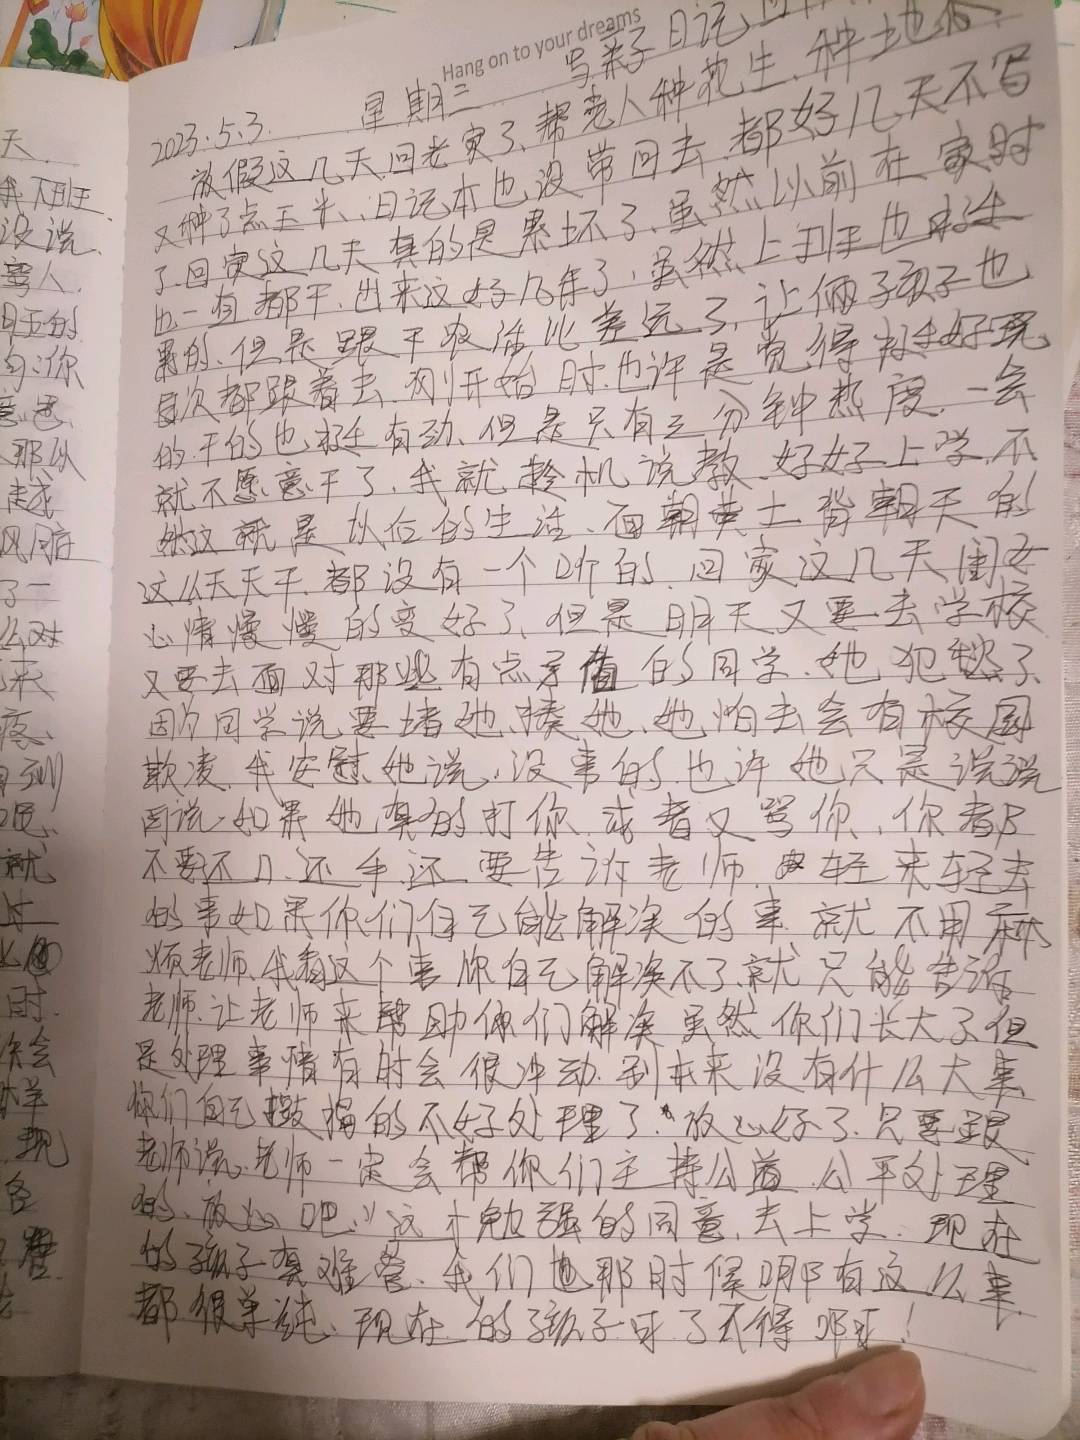 Hang on to your dreams
写亲子日记
2023.5.3. 星期三
放假这几天回老家了、帮老人种花生、种土地
又种了点玉米、日记本也没带回去、都好几天不写
了.回家这几天真的是累坏了、虽然以前在家时
也一直都干、出来这好几年了、虽然上班也挺
累的、但是跟干农活比差远了、让俩孩子也
每次都跟着去、刚开始时也许是觉得挺好玩
的.干的也挺有劲、但是只有三分钟热度、一会
就不愿意干了、我就趁机说教、好好上学、不
然这就是以后的生活、面朝黄土背朝天的
这么天天干、都没有一个听的、回家这几天闺女
心情慢慢的变好了、但是明天又要去学校
又要去面对那些有点矛盾的同学、她犯愁了、
因为同学说要堵她、揍她、她怕去会有校园
欺凌、我安慰她说、没事的、也许她只是说说
而说、如果她真的打你、或者又骂你、你都
不要不口、还手、还要告诉老师、轻来轻去
的事如果你们自己能解决的事、就不用麻
烦老师、我看这个事你自己解决不了、就只能告诉
老师、让老师来帮助你们解决、虽然你们长大了但
是处理事情有时会很冲动、到本来没有什么大事
你们自己搅搞的不好处理了、放心好了、只要跟
老师说、老师一定会帮你们主持公道、公平处理
的、放心吧、"这才勉强的同意、去上学、现在
的孩子真难管、我们也那时候哪有这么事、
都很单纯、现在的孩子可了不得啊！
天
我下班
没说
骂人
的
你
意思
那以
越
了一
么对
来
疼
就
时
会
样
现
各